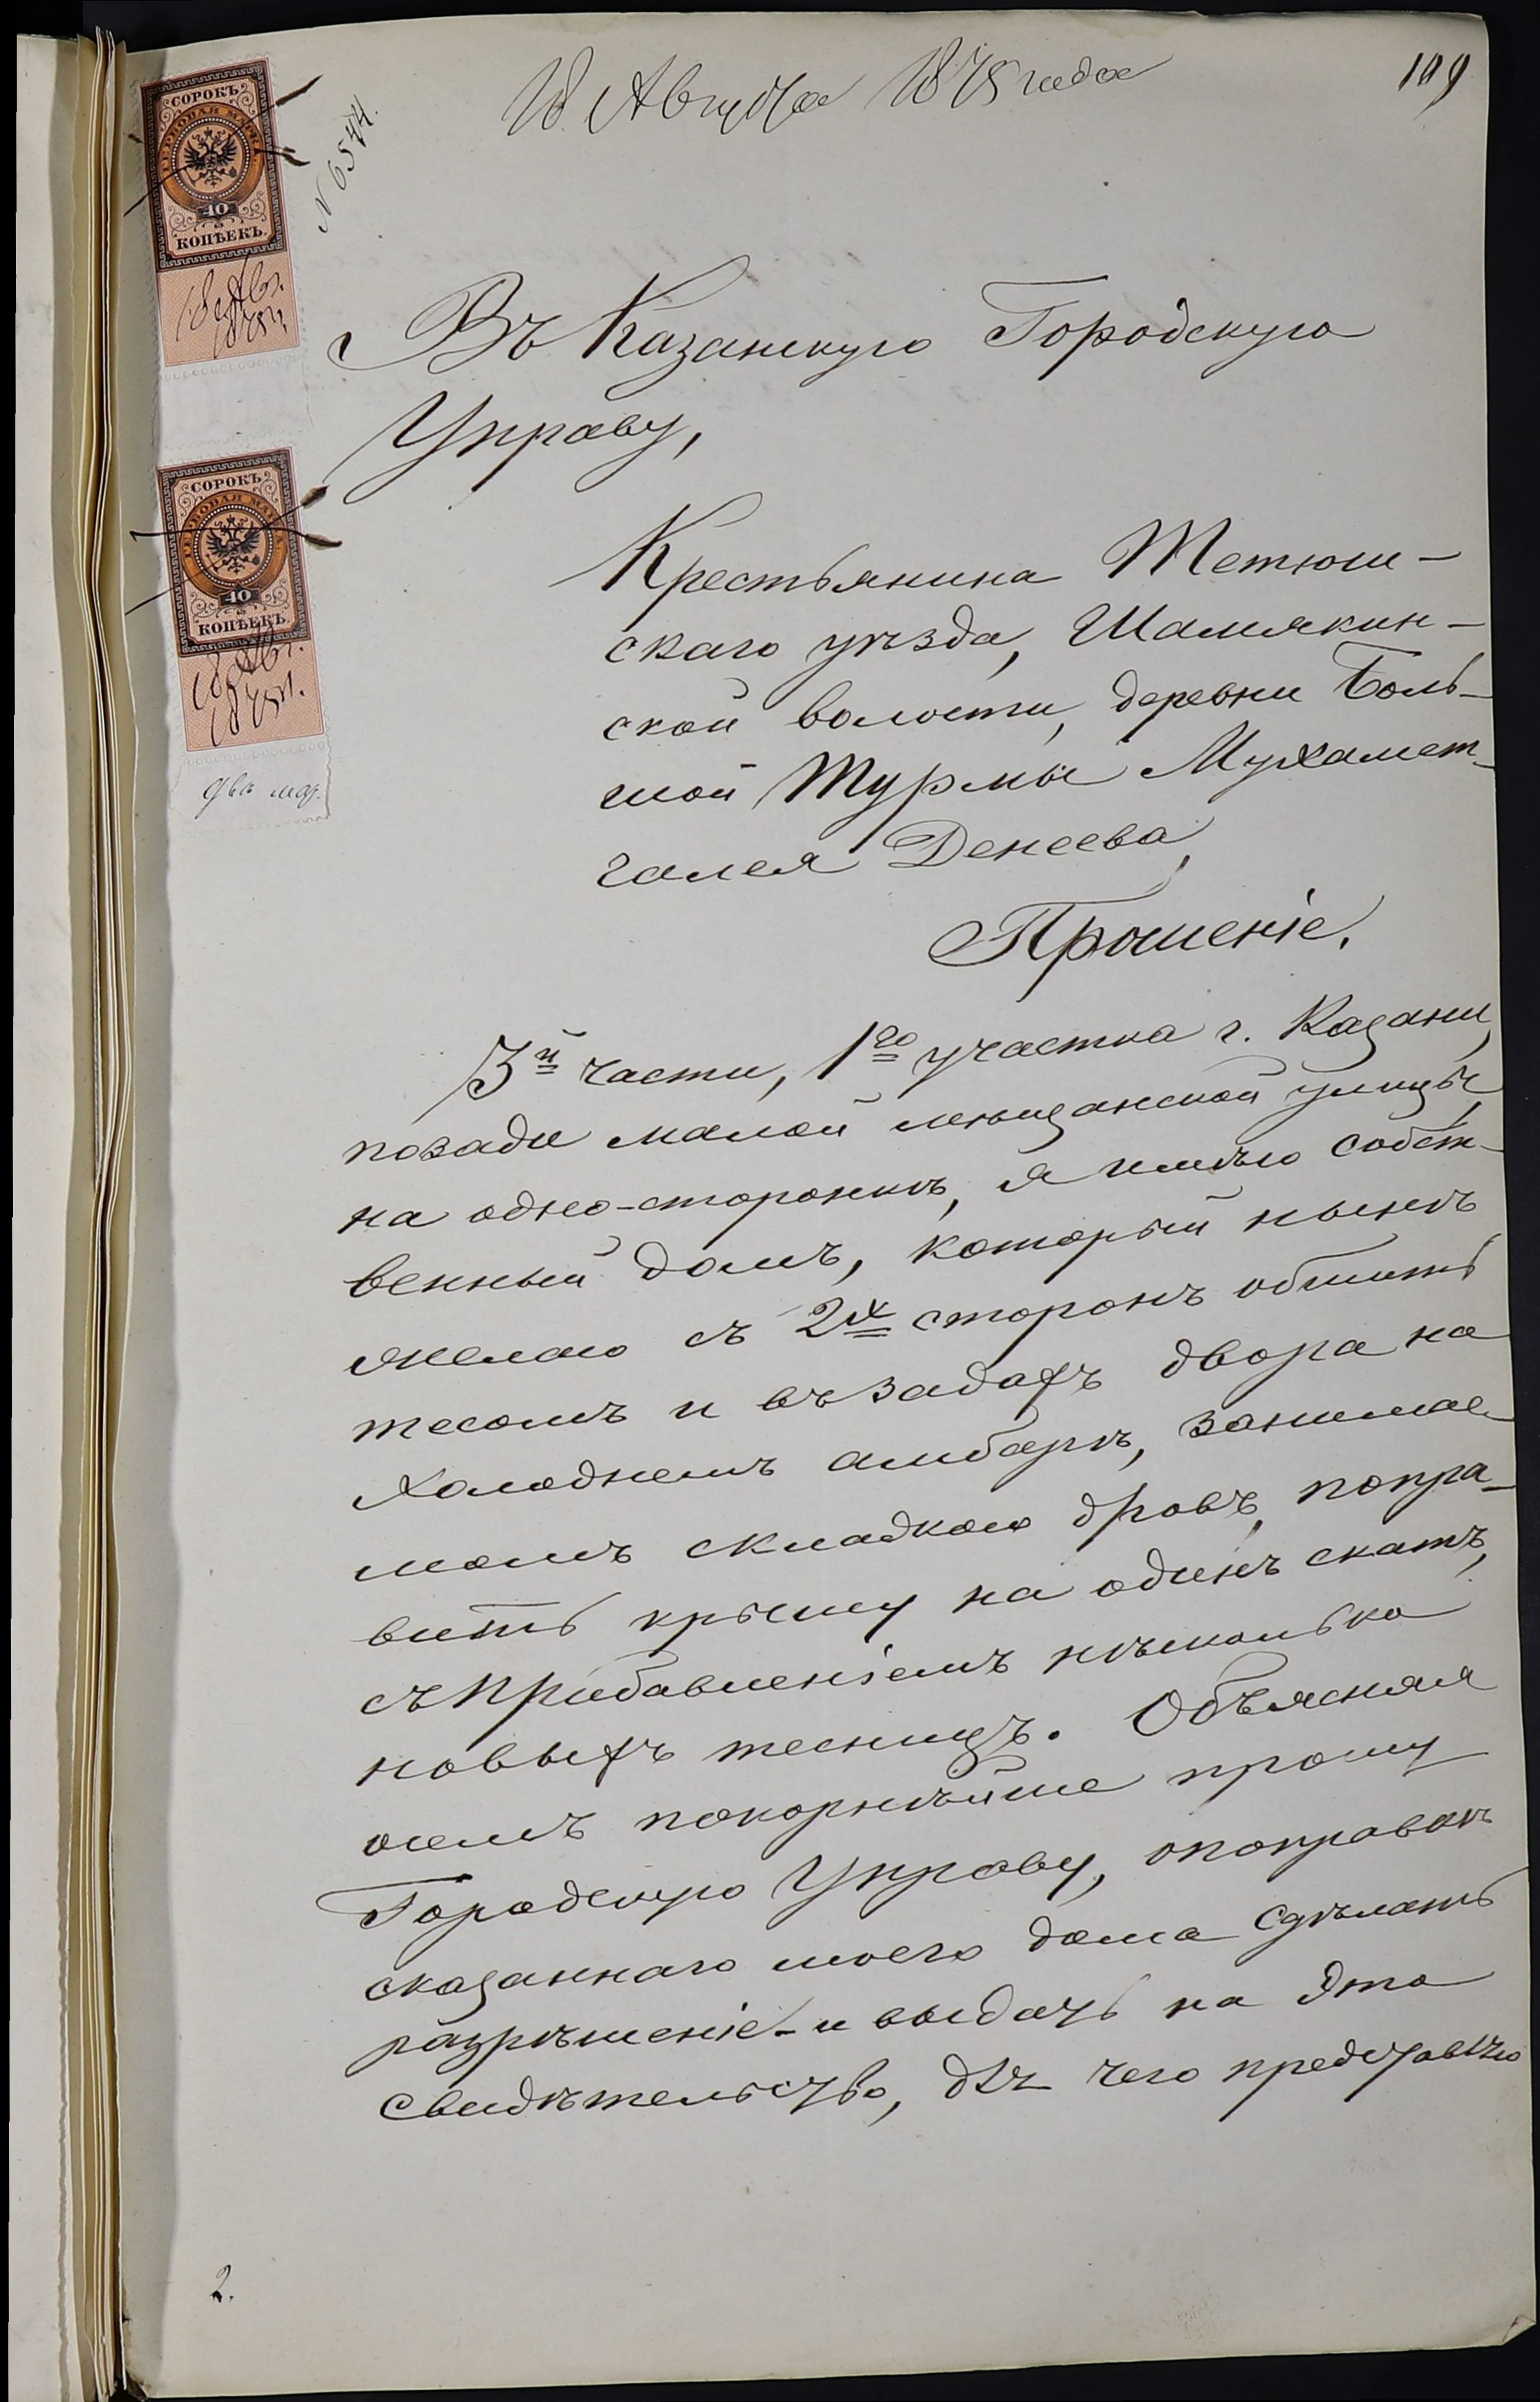 18 Августа 1875 года
109
N 6544.
СОРОКЪ
ГЕРБОВАЯ МАРКА
40
КОПѢЕКЪ.
18 Авг.
1875 г.
Въ Казанскую Городскую
Управу,
СОРОКЪ
ГЕРБОВАЯ МАРКА
40
КОПѢЕКЪ.
18 Авг.
1875 г.
Двѣ мар.
Крестьянина Тетюш-
скаго уѣзда, Шамякин-
ской волости, деревни Боль-
шой Турмы Мухамет-
галея Денеева,
Прошеніе.
3й части, 1го участка г. Казани,
позади малой мѣщанской улицы
на одно-сторонкѣ, я имѣю собст-
венный домъ, который нынѣ
желаю съ 2х сторонъ обшить
тесомъ и въ задахъ двора на
холоднемъ амбарѣ, занимае-
момъ складкою дровъ, попра-
вить крышу на одинъ скатъ,
съ прибавленіемъ нѣсколько
новыхъ тесницъ. Объясняя
о семъ покорнѣйше прошу
Городскую Управу, о поправкѣ
сказаннаго моего дома сдѣлать
разрѣшеніе и выдать на это
свидѣтельство, для чего представляю
2.